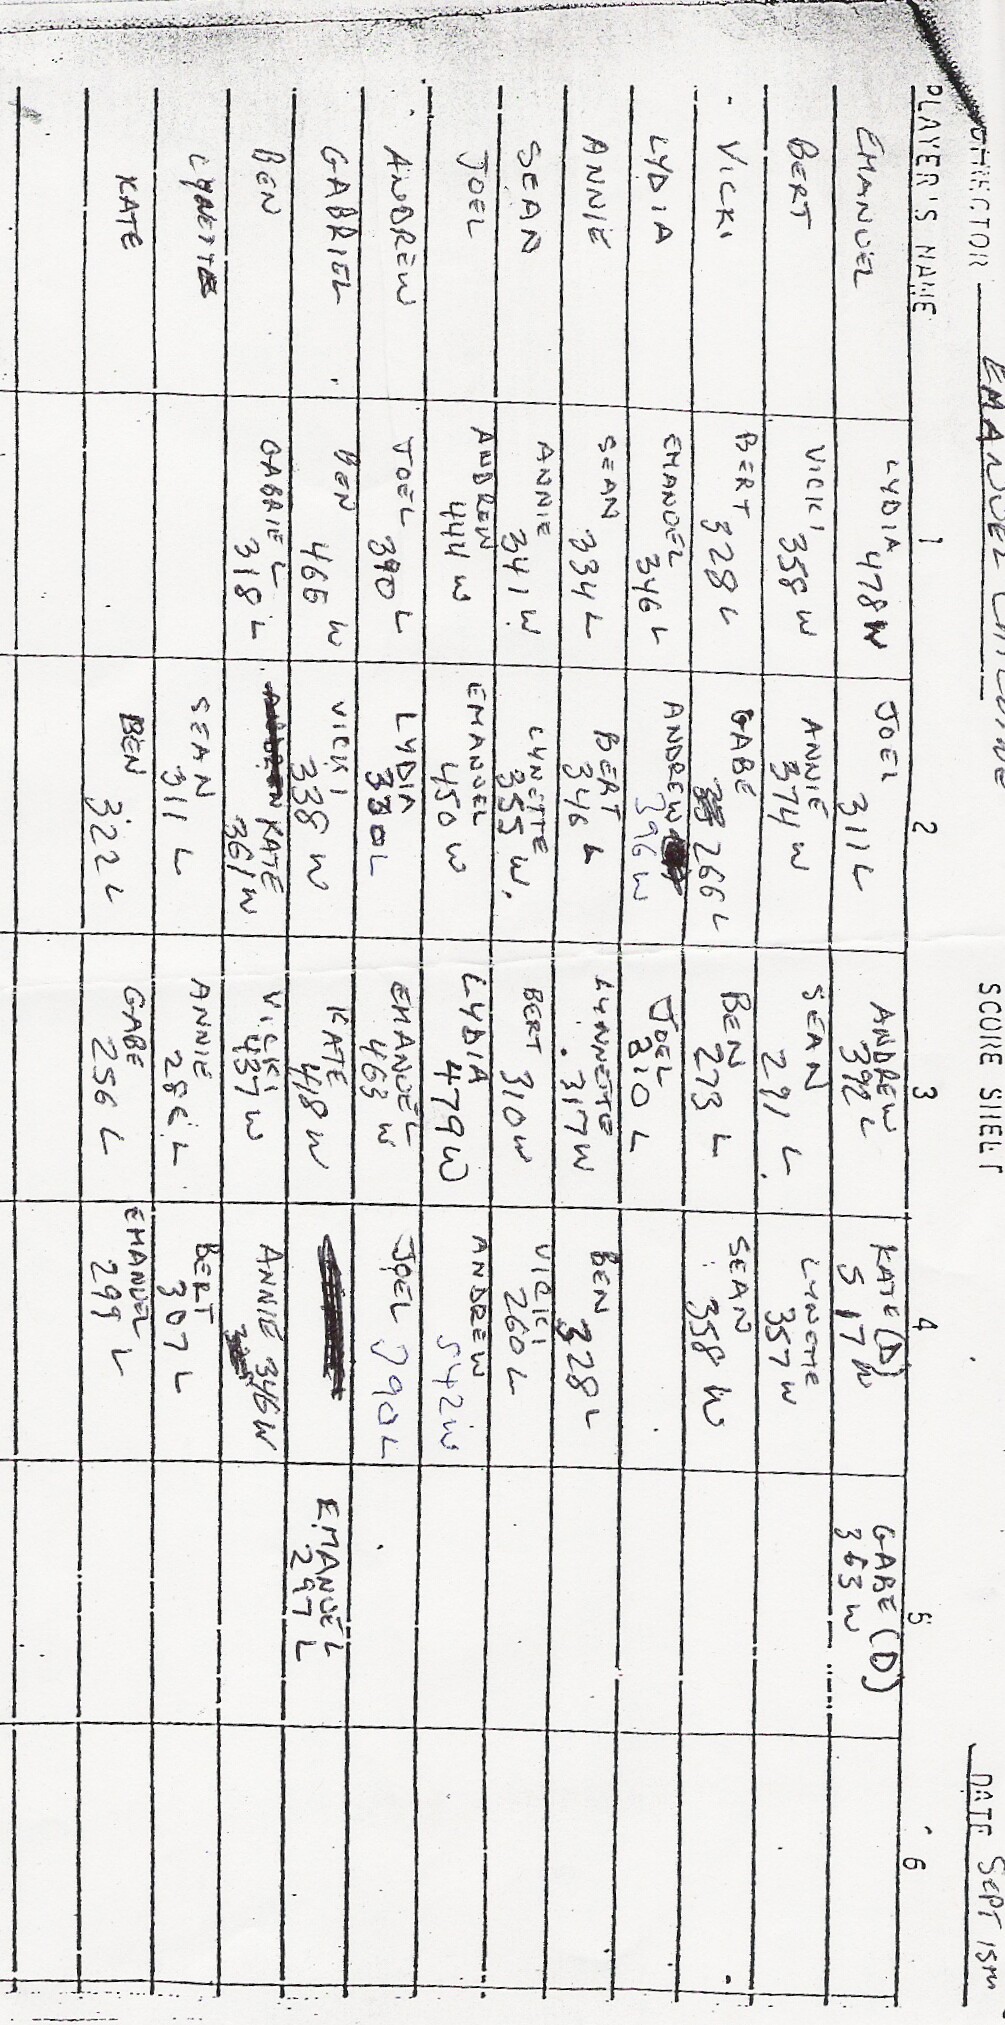 DIRECTOR EMANUEL
SCORE SHEET
DATE SEPT 15TH
PLAYER'S NAME 1 2 3 4 5 6
EMANUEL LYDIA 478 W JOEL 311 L ANDREW 392 L KATE (D) 517 W GABE (D) 363 W
BERT VICKI 358 W ANNIE 374 W SEAN 291 L LYNETTE 357 W
VICKI BERT 328 L GABE 266 L BEN 273 L SEAN 358 W
LYDIA EMANUEL 346 L ANDREW 396 W JOEL 210 L
ANNIE SEAN 334 L BERT 346 L LYNNETTE 317 W BEN 328 L
SEAN ANNIE 341 W LYNETTE 355 W. BERT 310 W VICKI 260 L
JOEL ANDREW 444 W EMANUEL 450 W LYDIA 479 W ANDREW 542 W
ANDREW JOEL 390 L LYDIA 330 L EMANUEL 463 W JOEL 290 L
GABRIEL BEN 466 W VICKI 338 W KATE 418 W EMANUEL 297 L
BEN GABRIEL 318 L KATE 361 W VICKI 437 W ANNIE 346 W
LYNETTE SEAN 311 L ANNIE 286 L BERT 307 L
KATE BEN 322 L GABE 256 L EMANUEL 299 L